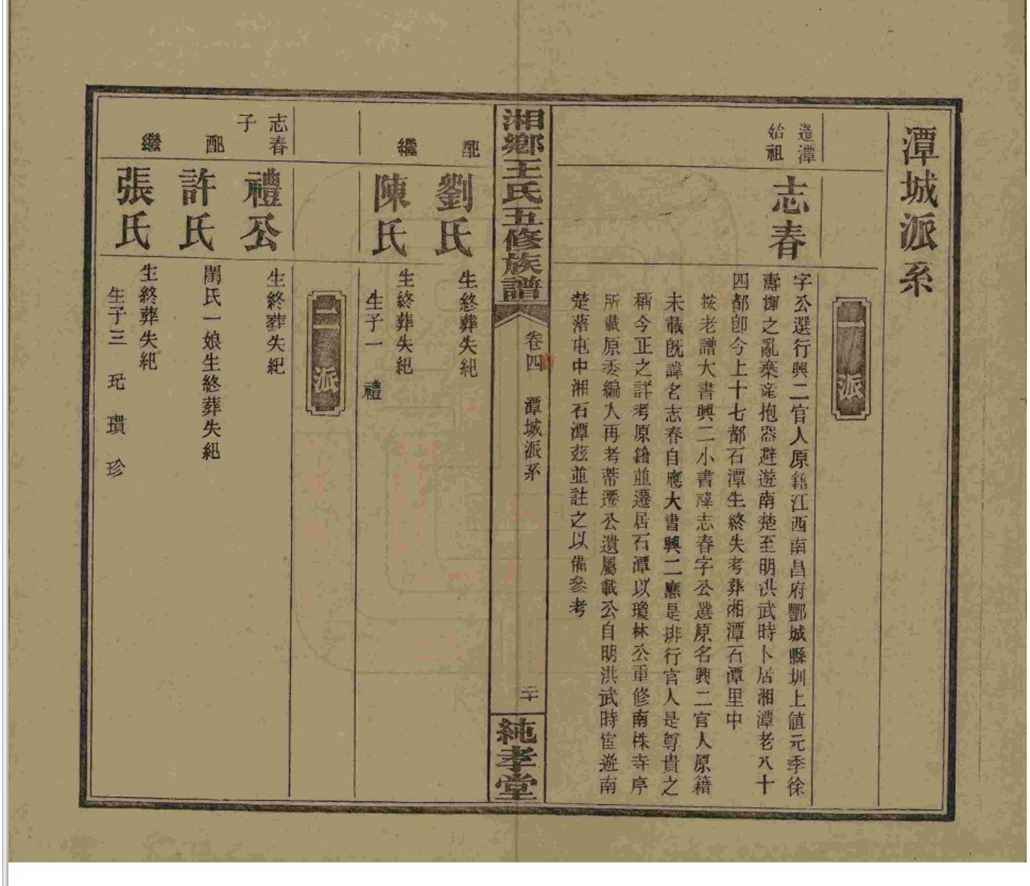 潭城派系
一派
遷潭
始祖
志春
字公選行興二官人原籍江西南昌府酆城縣圳上值元季徐
壽輝之亂棄産抱器避遊南楚至明洪武時卜居湘潭老八十
四都卽今上十七都石潭生終失考葬湘潭石潭里中
按老譜大書興二小書諱志春字公選原名興二官人原籍
未載旣諱名志春自應大書興二應是排行官人是尊貴之
稱今正之詳考原籍並遷居石潭以瓊林公重修南株寺序
所載原委編入再考蒂遷公遺屬載公自明洪武時宦遊南
楚落屯中湘石潭玆並註之以備參考
湘鄉王氏五修族譜
卷四
潭城派系
二十
純孝堂
配
劉氏
生終葬失紀
繼
陳氏
生終葬失紀
生子一 禮
二派
志春
子
禮公
生終葬失紀
配
許氏
閏氏一娘生終葬失紀
繼
張氏
生終葬失紀
生子三 玘 瓚 珍